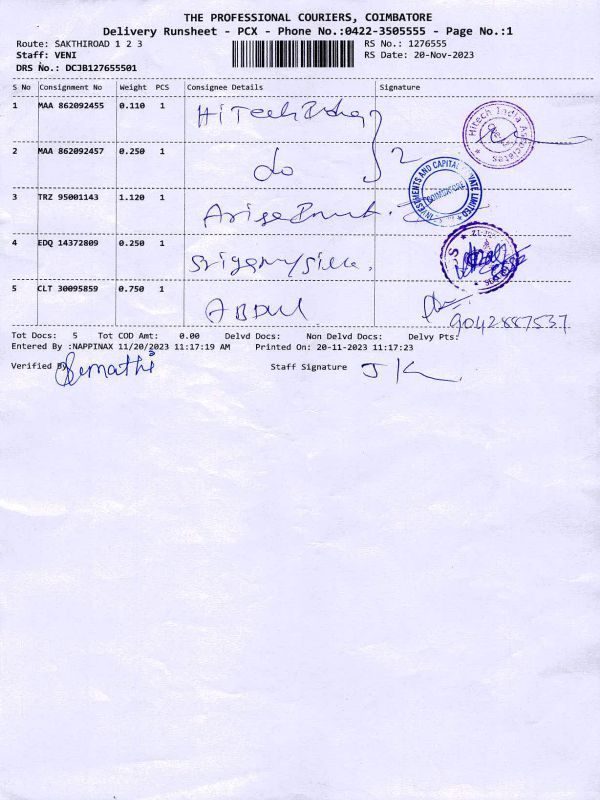 THE PROFESSIONAL COURIERS, COIMBATORE
Delivery Runsheet - PCX - Phone No.:0422-3505555 - Page No.:1
Route: SAKTHIROAD 1 2 3
RS No.: 1276555
Staff: VENI
RS Date: 20-Nov-2023
DRS No.: DCJB127655501
S No Consignment No Weight PCS Consignee Details Signature
1 MAA 862092455 0.110 1 Hi Tech India
Hitech India Associates
2 MAA 862092457 0.250 1 do 2
INVESTMENTS AND CAPITAL PRIVATE LIMITED
COIMBATORE
3 TRZ 95001143 1.120 1 Arise
4 EDQ 14372809 0.250 1
5 CLT 30095859 0.750 1 ABDUL
9042887537
Tot Docs: 5 Tot COD Amt: 0.00 Delvd Docs: Non Delvd Docs: Delvy Pts:
Entered By :NAPPINAX 11/20/2023 11:17:19 AM Printed On: 20-11-2023 11:17:23
Verified By Staff Signature